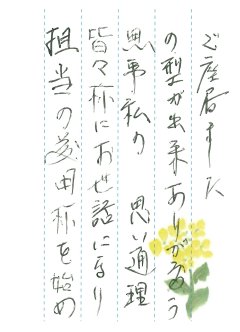 担当の田様を始め
皆々様にお世話になり
無事私の 思い通理
の型が出来ありがとう
ご座居ました